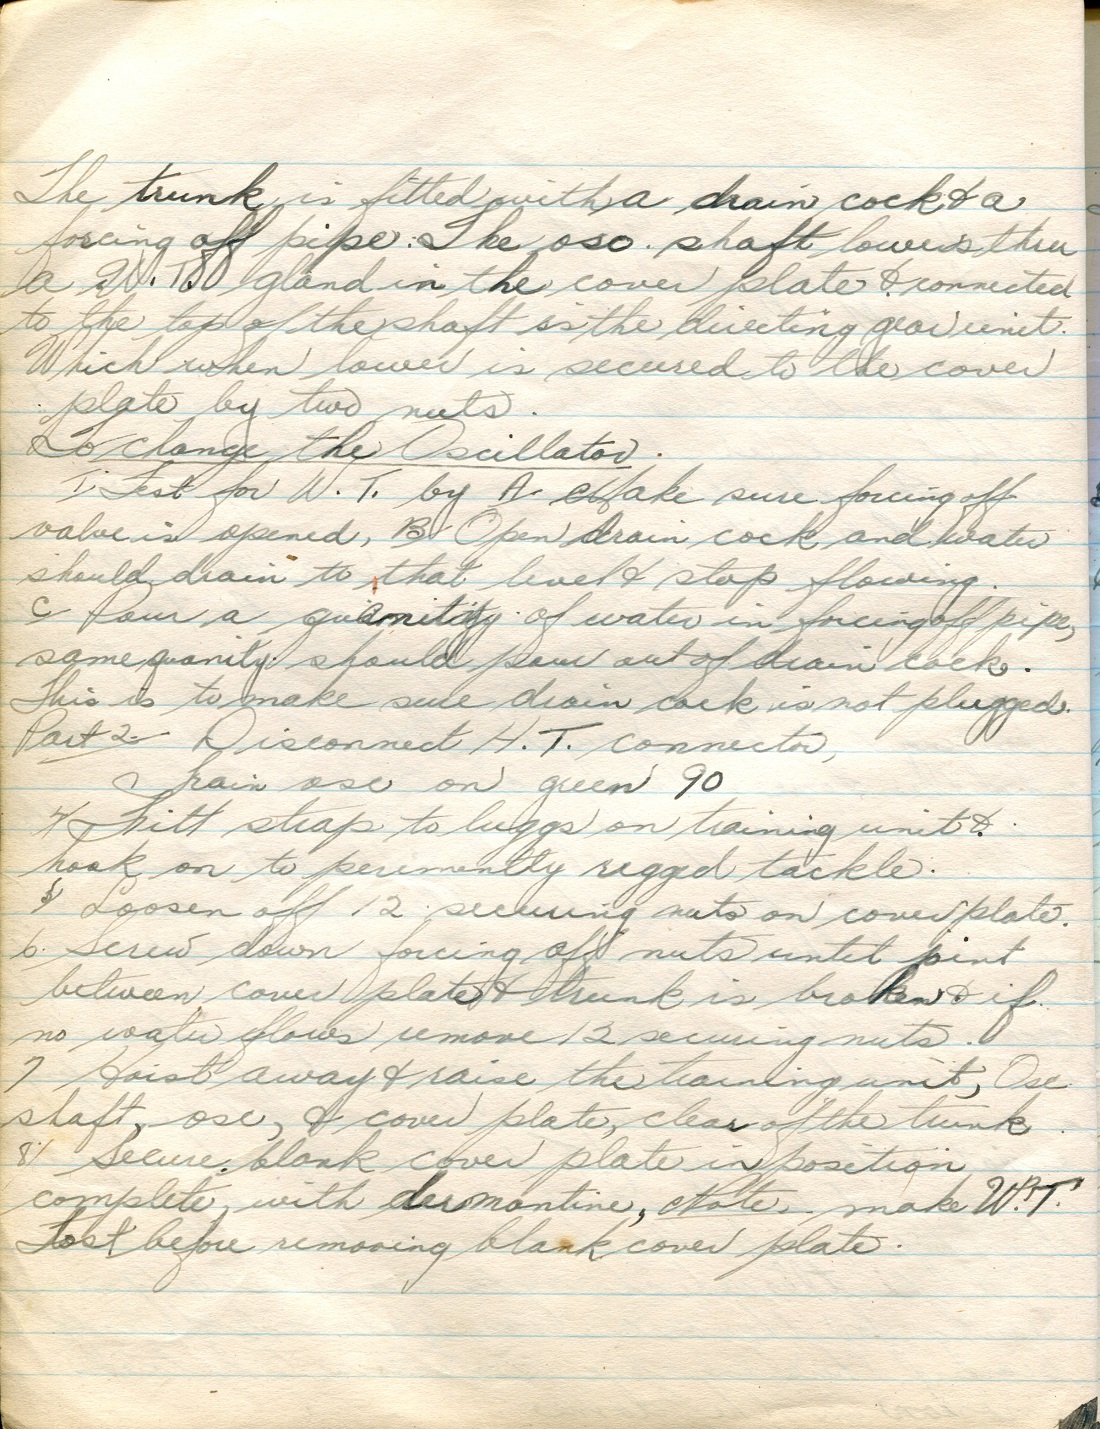 The trunk is fitted with a drain cock & a
forcing off pipe. The osc. shaft lowers thru
a W.T. gland in the cover plate & connected
to the top of the shaft is the directing gear unit.
Which when lower is secured to the cover
plate by two nuts.
To change the Oscillator.
1 Test for W.T. by A. Make sure forcing off
valve is opened, B Open drain cock and water
should drain to that level & stop flowing.
C Pour a quanitity of water in forcing off pipe,
same quanity should pour out of drain cock.
This is to make sure drain cock is not plugged.
Part 2 Disconnect H.T. connector,
Train osc on green 90
4 Fitt strap to luggs on training unit &
hook on to perimently rigged tackle.
5 Loosen off 12 securing nuts on cover plate.
6. Screw down forcing off nuts until joint
between cover plate & trunk is broken & if
no water flows remove 12 securing nuts.
7 Hoist away & raise the training unit, Osc
shaft, osc, & cover plate, clear of the trunk
8/ Secure blank cover plate in position
complete, with dermantine, Note. make W.T.
Test before removing blank cover plate.